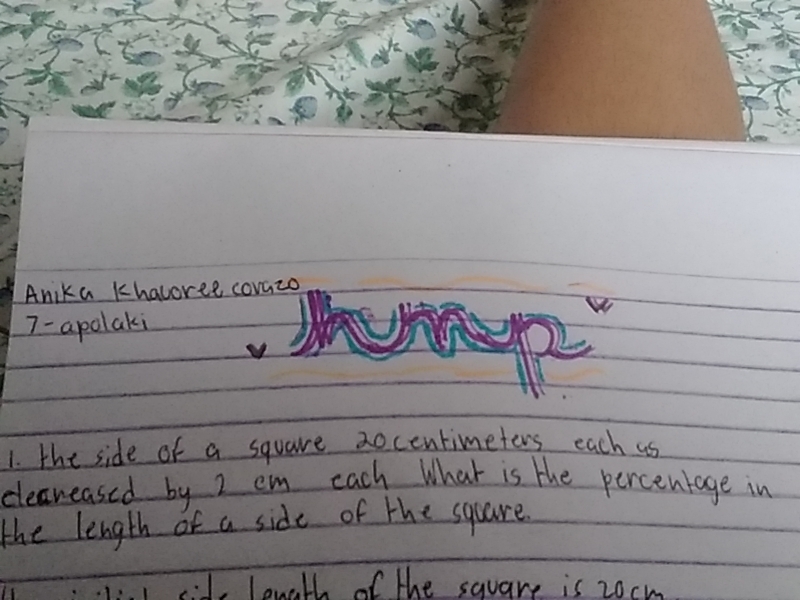 Anika Khavoree covazo
7-apolaki
hmp
1. the side of a square 20 centimeters each as
decreased by 2 cm each What is the percentage in
the length of a side of the square.
side length of the square is 20cm